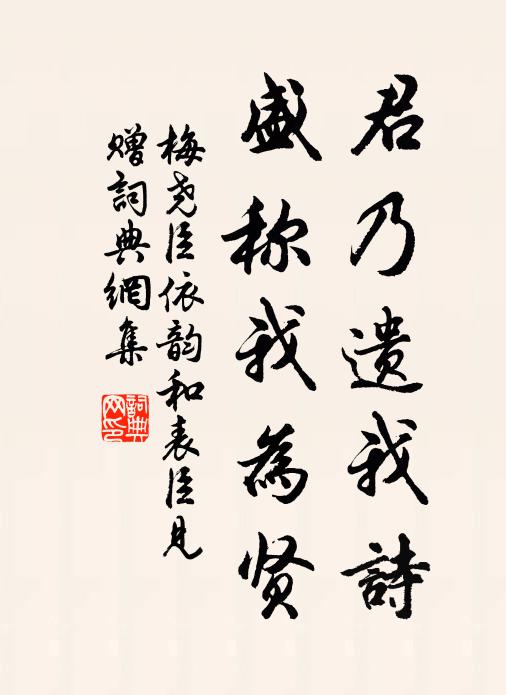 君乃遗我詩
盛称我為贤
梅尧臣依韵和表臣见
赠詞典網集
詞典网印